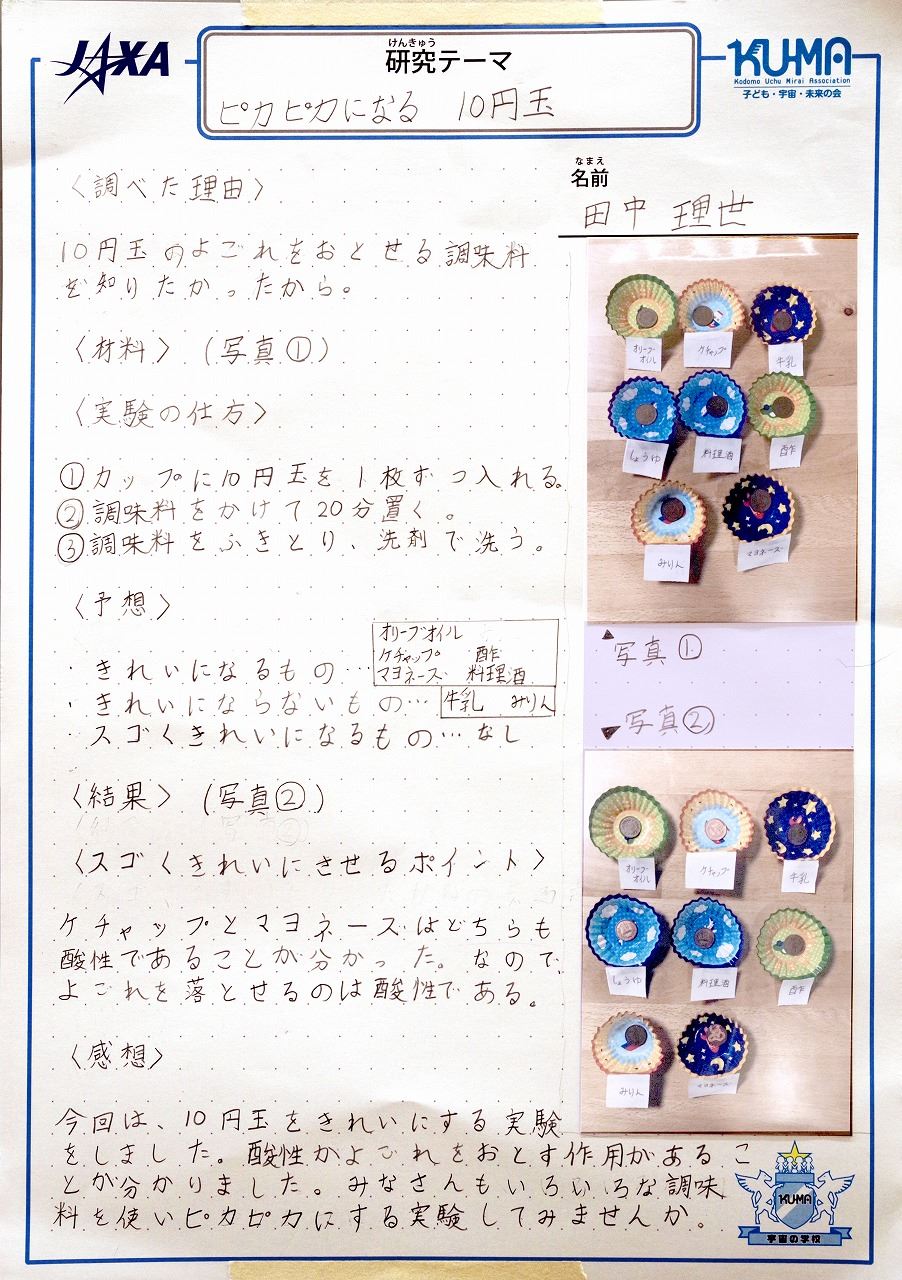 JAXA
けんきゅう
研究テーマ
ピカピカになる 10円玉
KU-MA
Kodomo Uchu Mirai Association
子ども・宇宙・未来の会
なまえ
名前
田中 理世
〈調べた理由〉
10円玉のよごれをおとせる調味料
を知りたかったから。
〈材料〉 (写真①)
〈実験の仕方〉
①カップに10円玉を1枚ずつ入れる。
②調味料をかけて20分置く。
③調味料をふきとり、洗剤で洗う。
〈予想〉
・きれいになるもの…
オリーブオイル
ケチャップ 酢
マヨネーズ 料理酒
・きれいにならないもの… 牛乳 みりん
スゴくきれいになるもの…なし
〈結果〉 (写真②)
〈スゴくきれいにさせるポイント〉
ケチャップとマヨネーズはどちらも
酸性であることが分かった。なので、
よごれを落とせるのは酸性である。
〈感想〉
今回は、10円玉をきれいにする実験
をしました。酸性がよごれをおとす作用があるこ
とが分かりました。みなさんもいろいろな調味
料を使いピカピカにする実験してみませんか。
オリーブ
オイル
ケチャップ
牛乳
しょうゆ
料理酒
酢
みりん
マヨネーズ
▲写真①
▼写真②
オリーブ
オイル
ケチャップ
牛乳
しょうゆ
料理酒
酢
みりん
マヨネーズ
KUMA
宇宙の学校